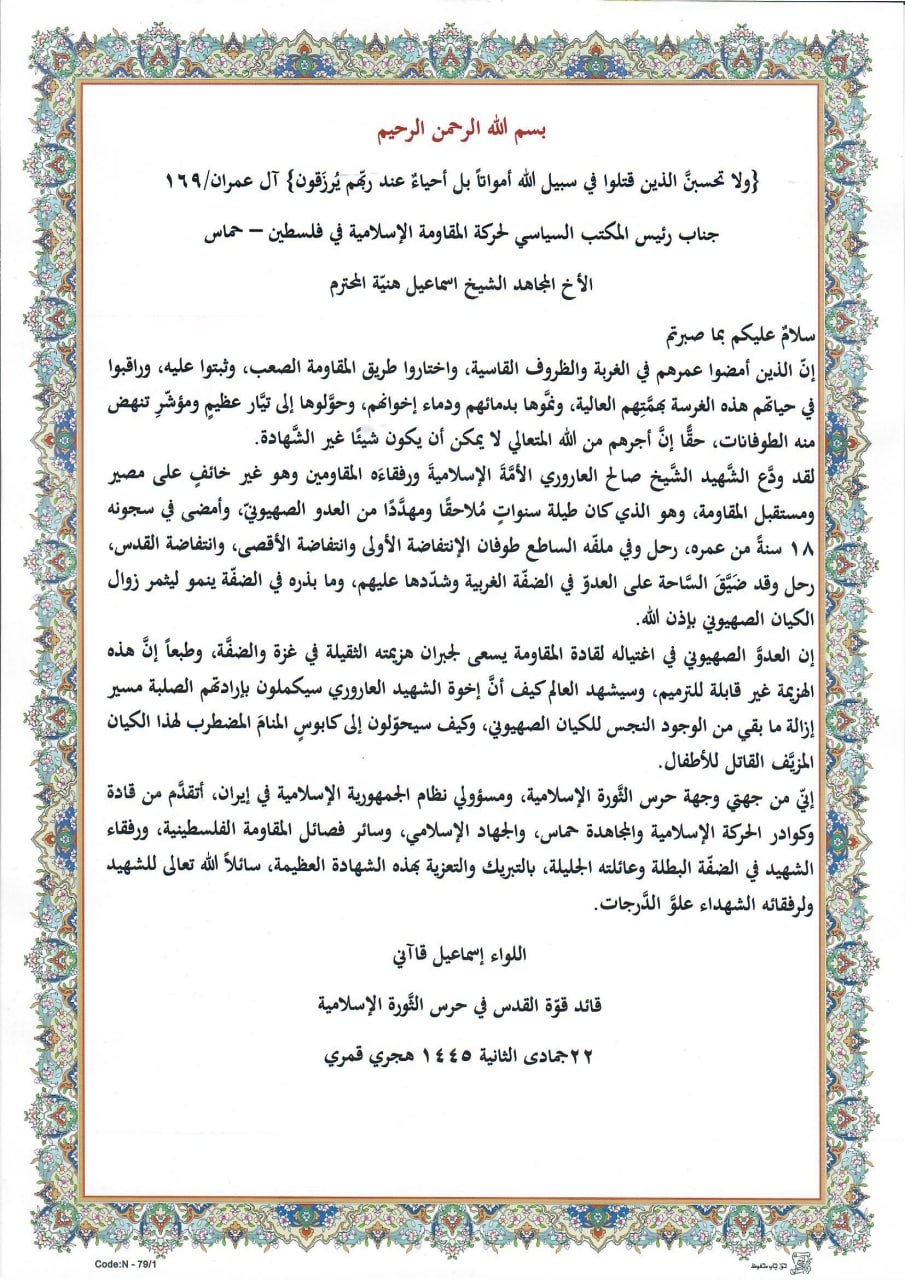 بسم الله الرحمن الرحيم
{ولا تحسبنَّ الذين قتلوا في سبيل الله أمواتاً بل أحياءٌ عند ربهّم يُرزَقون} آل عمران/١٦٩
جناب رئيس المكتب السياسي لحركة المقاومة الإسلامية في فلسطين – حماس
الأخ المجاهد الشيخ اسماعيل هنيّة المحترم
سلامٌ عليكم بما صبرتم
إنّ الذين أمضوا عمرهم في الغربة والظروف القاسية، واختاروا طريق المقاومة الصعب، وثبتوا عليه، وراقبوا
في حياتهم هذه الغرسة بهمَّتِهم العالية، ونمَّوها بدمائهم ودماء إخوانهم، وحوَّلوها إلى تيَّار عظيمٍ ومؤشّرٍ تنهض
منه الطوفانات، حقًّا إنَّ أجرهم من الله المتعالي لا يمكن أن يكون شيئًا غير الشَّهادة.
لقد ودَّع الشَّهيد الشَّيخ صالح العاروري الأمَّةَ الإسلاميةَ ورفقاءَه المقاومين وهو غير خائفٍ على مصير
ومستقبل المقاومة، وهو الذي كان طيلة سنواتٍ مُلاحقًا ومهدَّدًا من العدو الصهيونيّ، وأمضى في سجونه
١٨ سنةً من عمره، رحل وفي ملفّه الساطع طوفان الإنتفاضة الأولى وانتفاضة الأقصى، وانتفاضة القدس،
رحل وقد ضَيَّقَ السَّاحة على العدوّ في الضفّة الغربية وشدّدها عليهم، وما بذره في الضفّة ينمو ليثمر زوال
الكيان الصهيوني بإذن الله.
إن العدوَّ الصهيوني في اغتياله لقادة المقاومة يسعى لجبران هزيمته الثقيلة في غزة والضفَّة، وطبعاً إنَّ هذه
الهزيمة غير قابلة للترميم، وسيشهد العالم كيف أنَّ إخوة الشهيد العاروري سيكملون بإرادتهم الصلبة مسير
إزالة ما بقي من الوجود النجس للكيان الصهيوني، وكيف سيحوّلون إلى كابوسٍ المنامَ المضطرب لهذا الكيان
المزيَّف القاتل للأطفال.
إنيّ من جهتي وجهة حرس الثَّورة الإسلامية، ومسؤولي نظام الجمهورية الإسلامية في إيران، أتقدَّم من قادة
وكوادر الحركة الإسلامية والمجاهدة حماس، والجهاد الإسلامي، وسائر فصائل المقاومة الفلسطينية، ورفقاء
الشهيد في الضفّة البطلة وعائلته الجليلة، بالتبريك والتعزية بهذه الشهادة العظيمة، سائلاً الله تعالى للشهيد
ولرفقائه الشهداء علوَّ الدَّرجات.
اللواء إسماعيل قاآني
قائد قوّة القدس في حرس الثَّورة الإسلامية
٢٢جمادى الثانية ١٤٤٥ هجري قمري
Code:N - 79/1